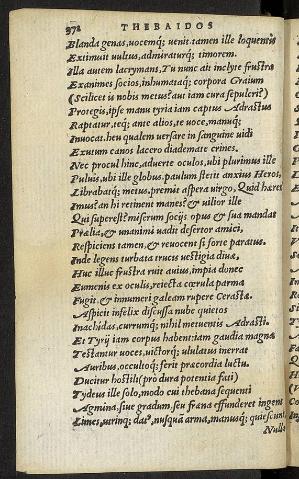 372 THEBAIDOS
Blanda genas, uocemq; uenit. tamen ille loquentis
Extimuit uultus, admiraturq; timorem.
Illa autem lacrymans, Tu nunc ait inclyte frustra
Exanimes socios, inhumataq; corpora Graium
(Scilicet is nobis metus? aut iam cura sepulcri?)
Protegis, ipse manu tyria iam captus Adrastus
Raptatur, teq; ante alios, te uoce, manuq;
Inuocat. heu qualem uersare in sanguine uidi
Exutum canos lacero diademate crines.
Nec procul hinc, aduerte oculos, ubi plurimus ille
Puluis, ubi ille globus. paulum stetit anxius Heros,
Librabatq; metus. premit aspera uirgo, Quid hæret
Imus? an hi retinent manes? & uilior ille
Qui superest? miserum socijs opus & sua mandat
Prælia, & unanimi uadit desertor amici,
Respiciens tamen, & reuocent si forte paratus.
Inde legens turbata trucis uestigia diuæ,
Huc illuc frustra ruit auius, impia donec
Eumenis ex oculis, reiecta cœrula parma
Fugit. & innumeri galeam rupere Cerastæ.
Aspicit infelix discussa nube quietos
Inachidas, currumq; nihil metuentis Adrasti.
Et Tyrij iam corpus habent: iam gaudia magnæ
Testantur uoces, uictorq; ululatus inerrat
Auribus, occultoq; ferit præcordia luctu.
Ducitur hostili (pro dura potentia fati)
Tydeus ille solo, modo cui thebana sequenti
Agmina, siue gradum, seu frena effunderet ingens
Limes, utrinq; datus, nusquã arma, manusq; quiescunt
Nulla